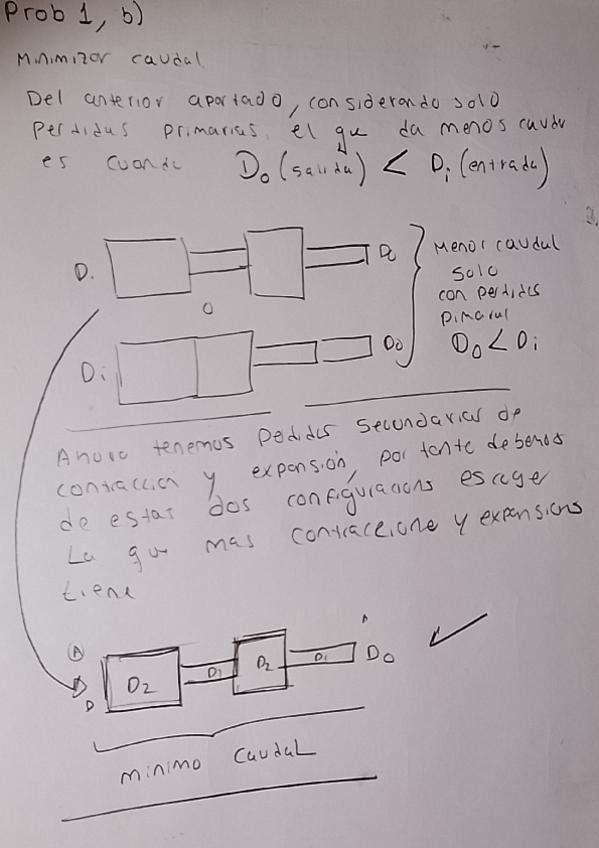 Prob 1, b)
Minimizar caudal
Del anterior apartado, considerando solo
perdidas primarias, el que da menos caudal
es cuando Do (salida) < Di (entrada)
D. Do
o
Di Do
Menor caudal
solo
con perdidas
Do < Di
Ahora tenemos secundarias de
contraccion y expansión, por tanto debemos
de estas dos configuracions escoger
La que mas y
tiene
A
D2 D2 Do
minimo caudal